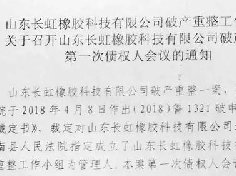 山东长虹橡胶科技有限公司破产重整工
关于召开山东长虹橡胶科技有限公司破
第一次债权人会议的通知
山东长虹橡胶科技有限公司破产重整一案,
院于2018年4月8日作出(2018)鲁1321破申
裁定书》,裁定对山东长虹橡胶科技有限公司
南县人民法院指定成立了山东长虹橡胶科技有
重整工作小组为管理人。本案第一次债权人会